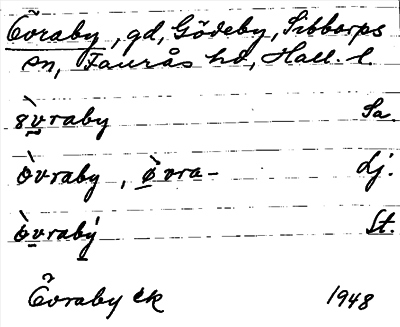 Övraby, gd, Gödeby, Sibbarps
sn, Faurås hd, Hall. l.
ȣ̀vraby Sa.
òvraby, ø̀vra- Dj.
ò̤vraby St.
Övraby ek 1948